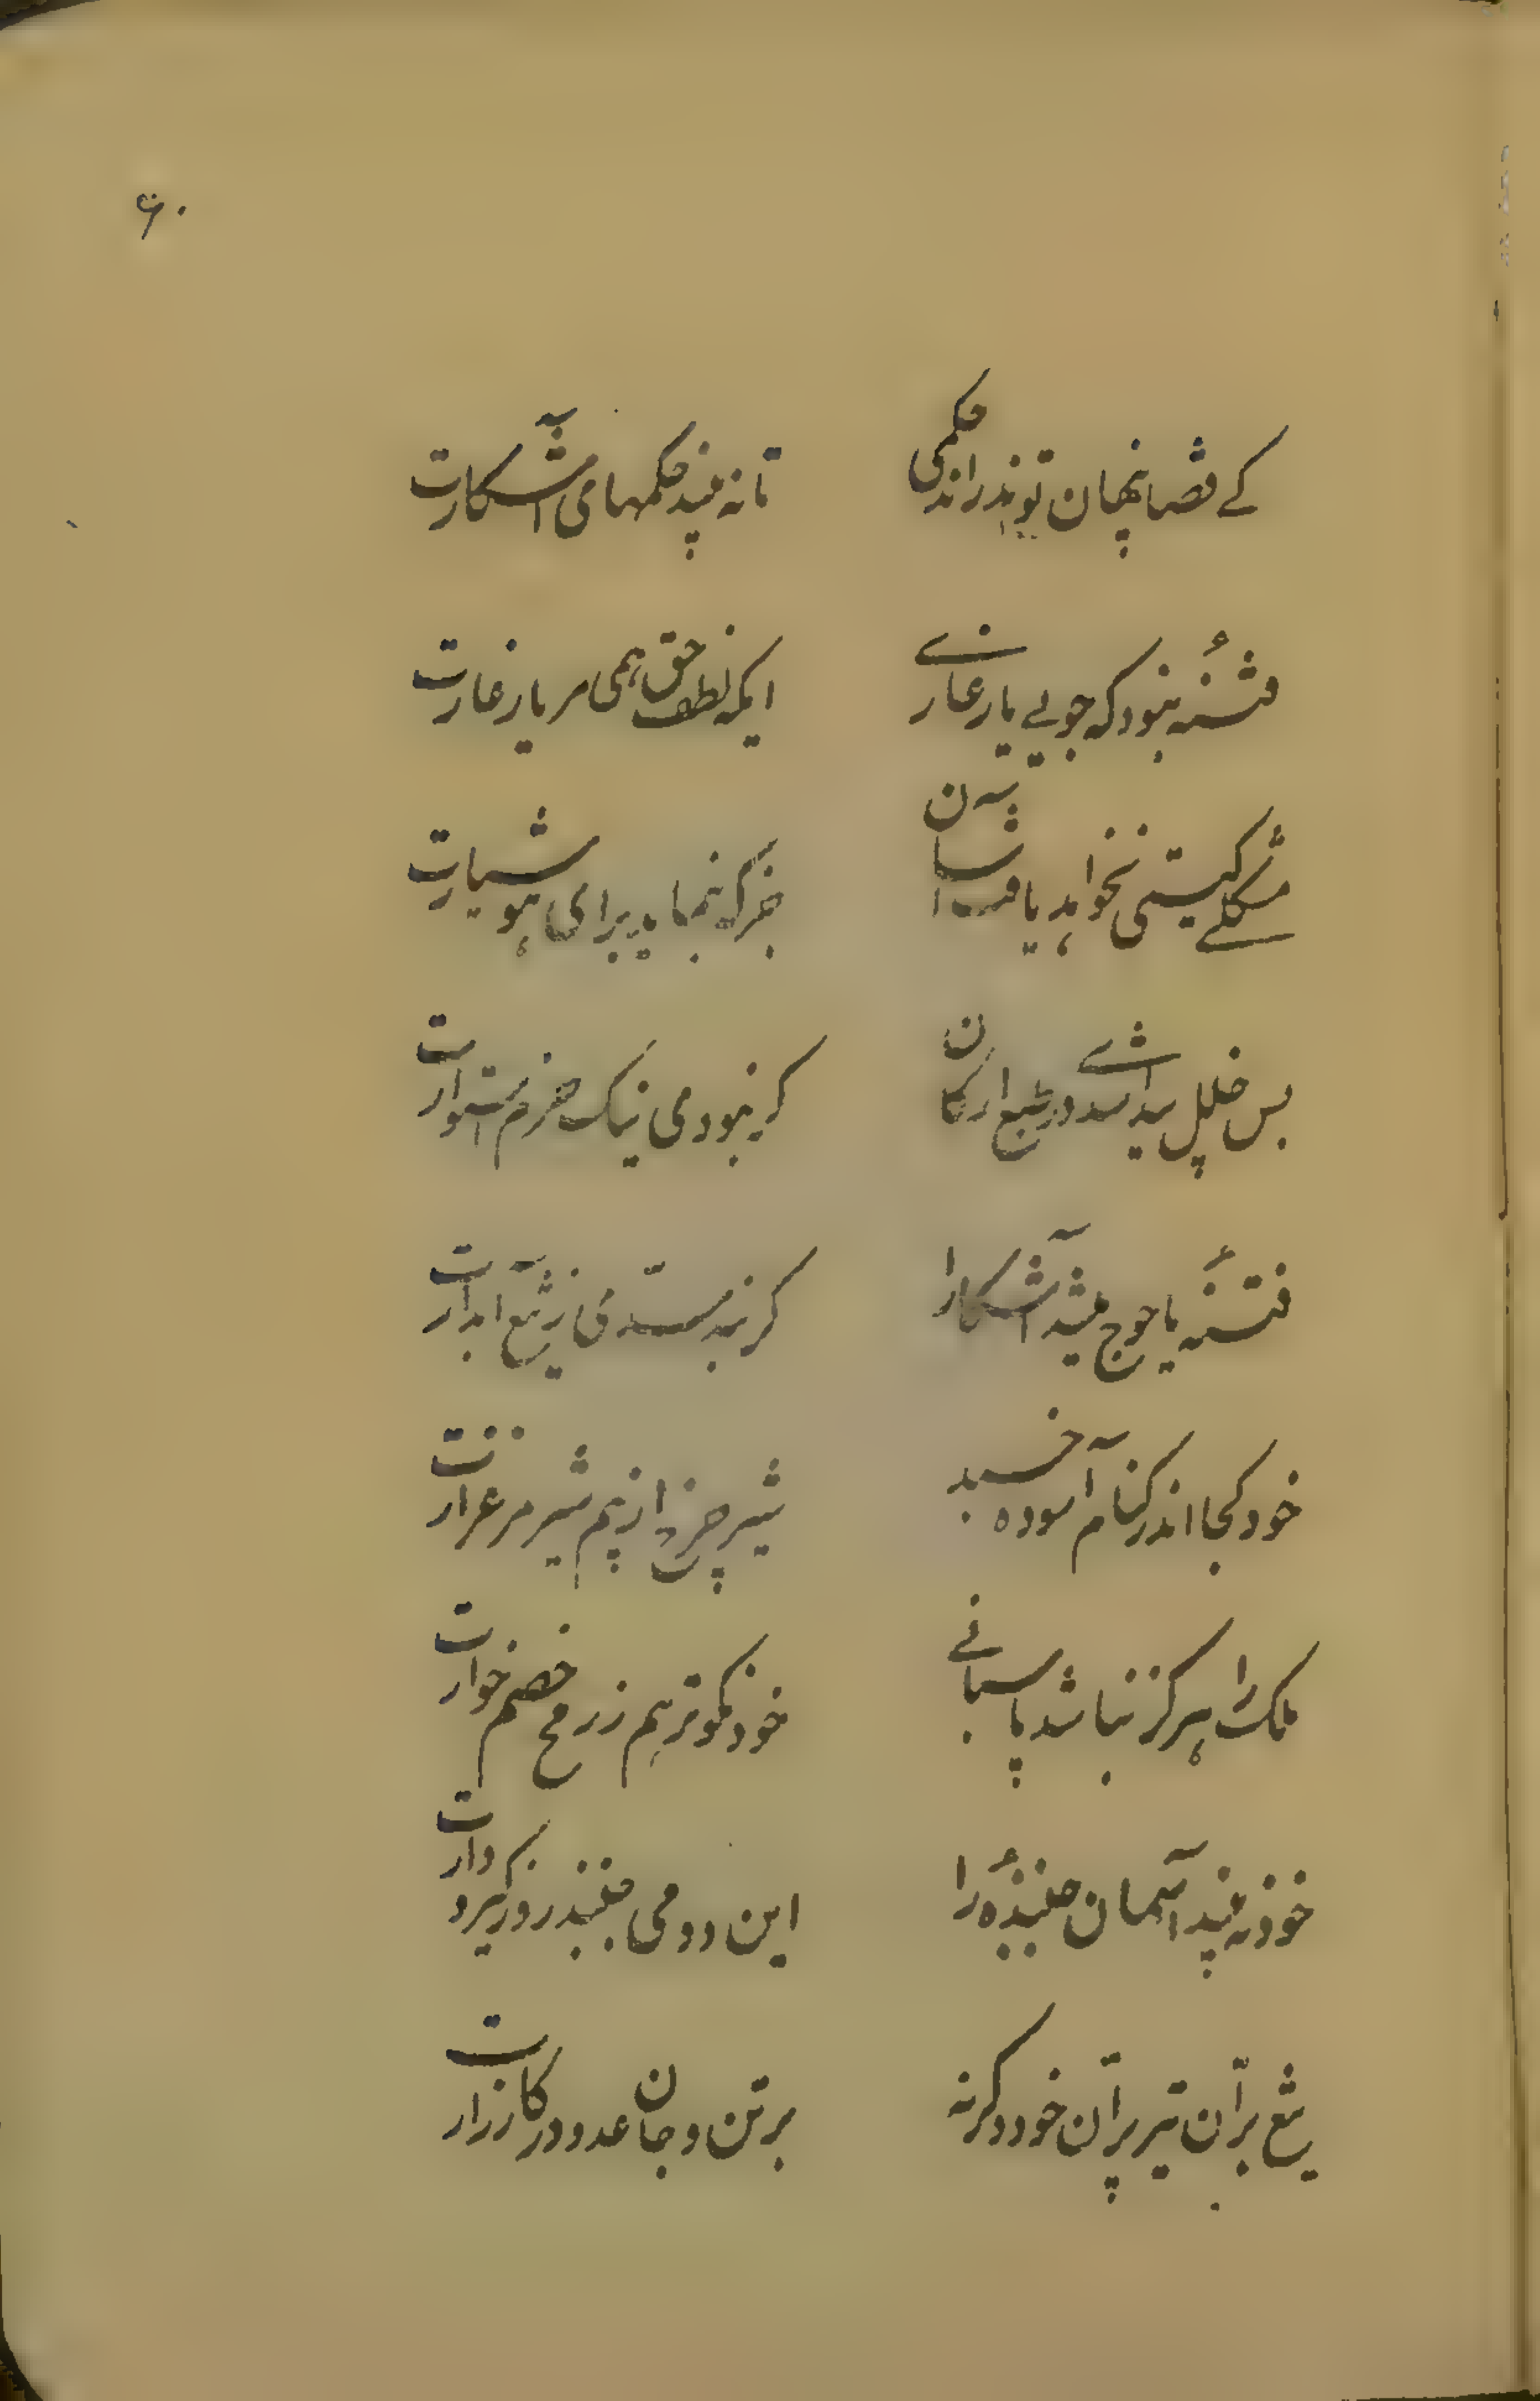 ۶۰
کے قضا پنهان تواند راند حکمی
تا نه بیند حکمهای آشکارت
فتنهٔ نبود که جوید یار غاری
ایکه لطف حق همی مر یار غارت
مشکلے گیتی نخواهد یافت آسان
جز که بنماید برای هوشیارت
بس خلل پیدا شدے در طبع ارکان
گر نبودی نیک حزم استوارت
فتنهٔ یاجوج میشد آشکارا
گر نبد سدّی ز تیغ آبدارت
خود کجا اندر کنام آسوده خسبد
شیر چرخ از بیم شیر مرغزارت
ملک را هرگز نباشد پاسبانے
خود نکوتر هم ز رمح خصم خوارت
خود نه بیند آسمان جنبنده را
این دو می جنبند روز گیر و دارت
تیغ برّان تیر پرّان خود دگر نه
بر تن و جان عدو در کارزارت